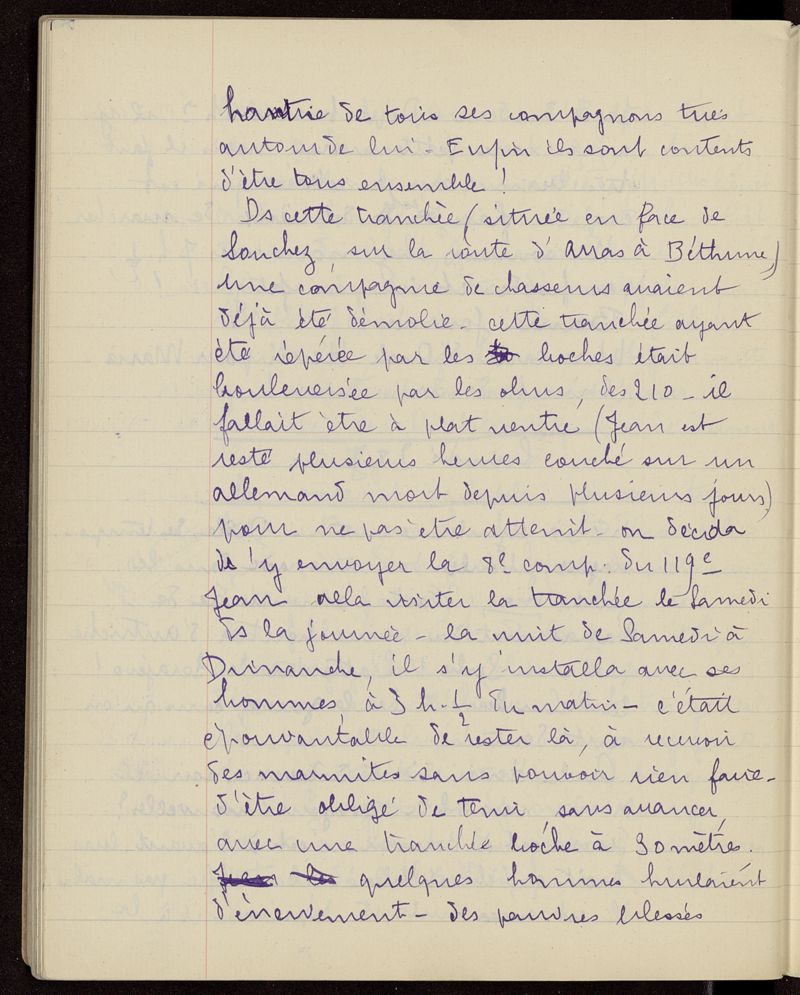 hantise de tous ses compagnons tués
autour de lui - Enfin ils sont contents
d'être tous ensemble !
Ds cette tranchée (située en face de
Souchez, sur la route d'Arras à Béthune,)
une compagnie de chasseurs avaient
déjà été démolie - cette tranchée ayant
été repérée par les boches était
bouleversée par les obus, des 210 - il
fallait être à plat ventre (Jean est
resté plusieurs heures couché sur un
allemand mort depuis plusieurs jours)
pour ne pas être atteint - on décida
d'y envoyer la 8e comp. du 119e
Jean alla visiter la tranchée le Samedi
ds la journée - la nuit de Samedi à
Dimanche, il s'y installa avec ses
hommes, à 3 h. 1/2 du matin - c'était
épouvantable de rester là, à recevoir
des marmites sans pouvoir rien faire -
d'être obligé de tenir sans avancer,
avec une tranchée boche à 30 mètres.
quelques hommes hurlaient
d'énervement - des pauvres blessés